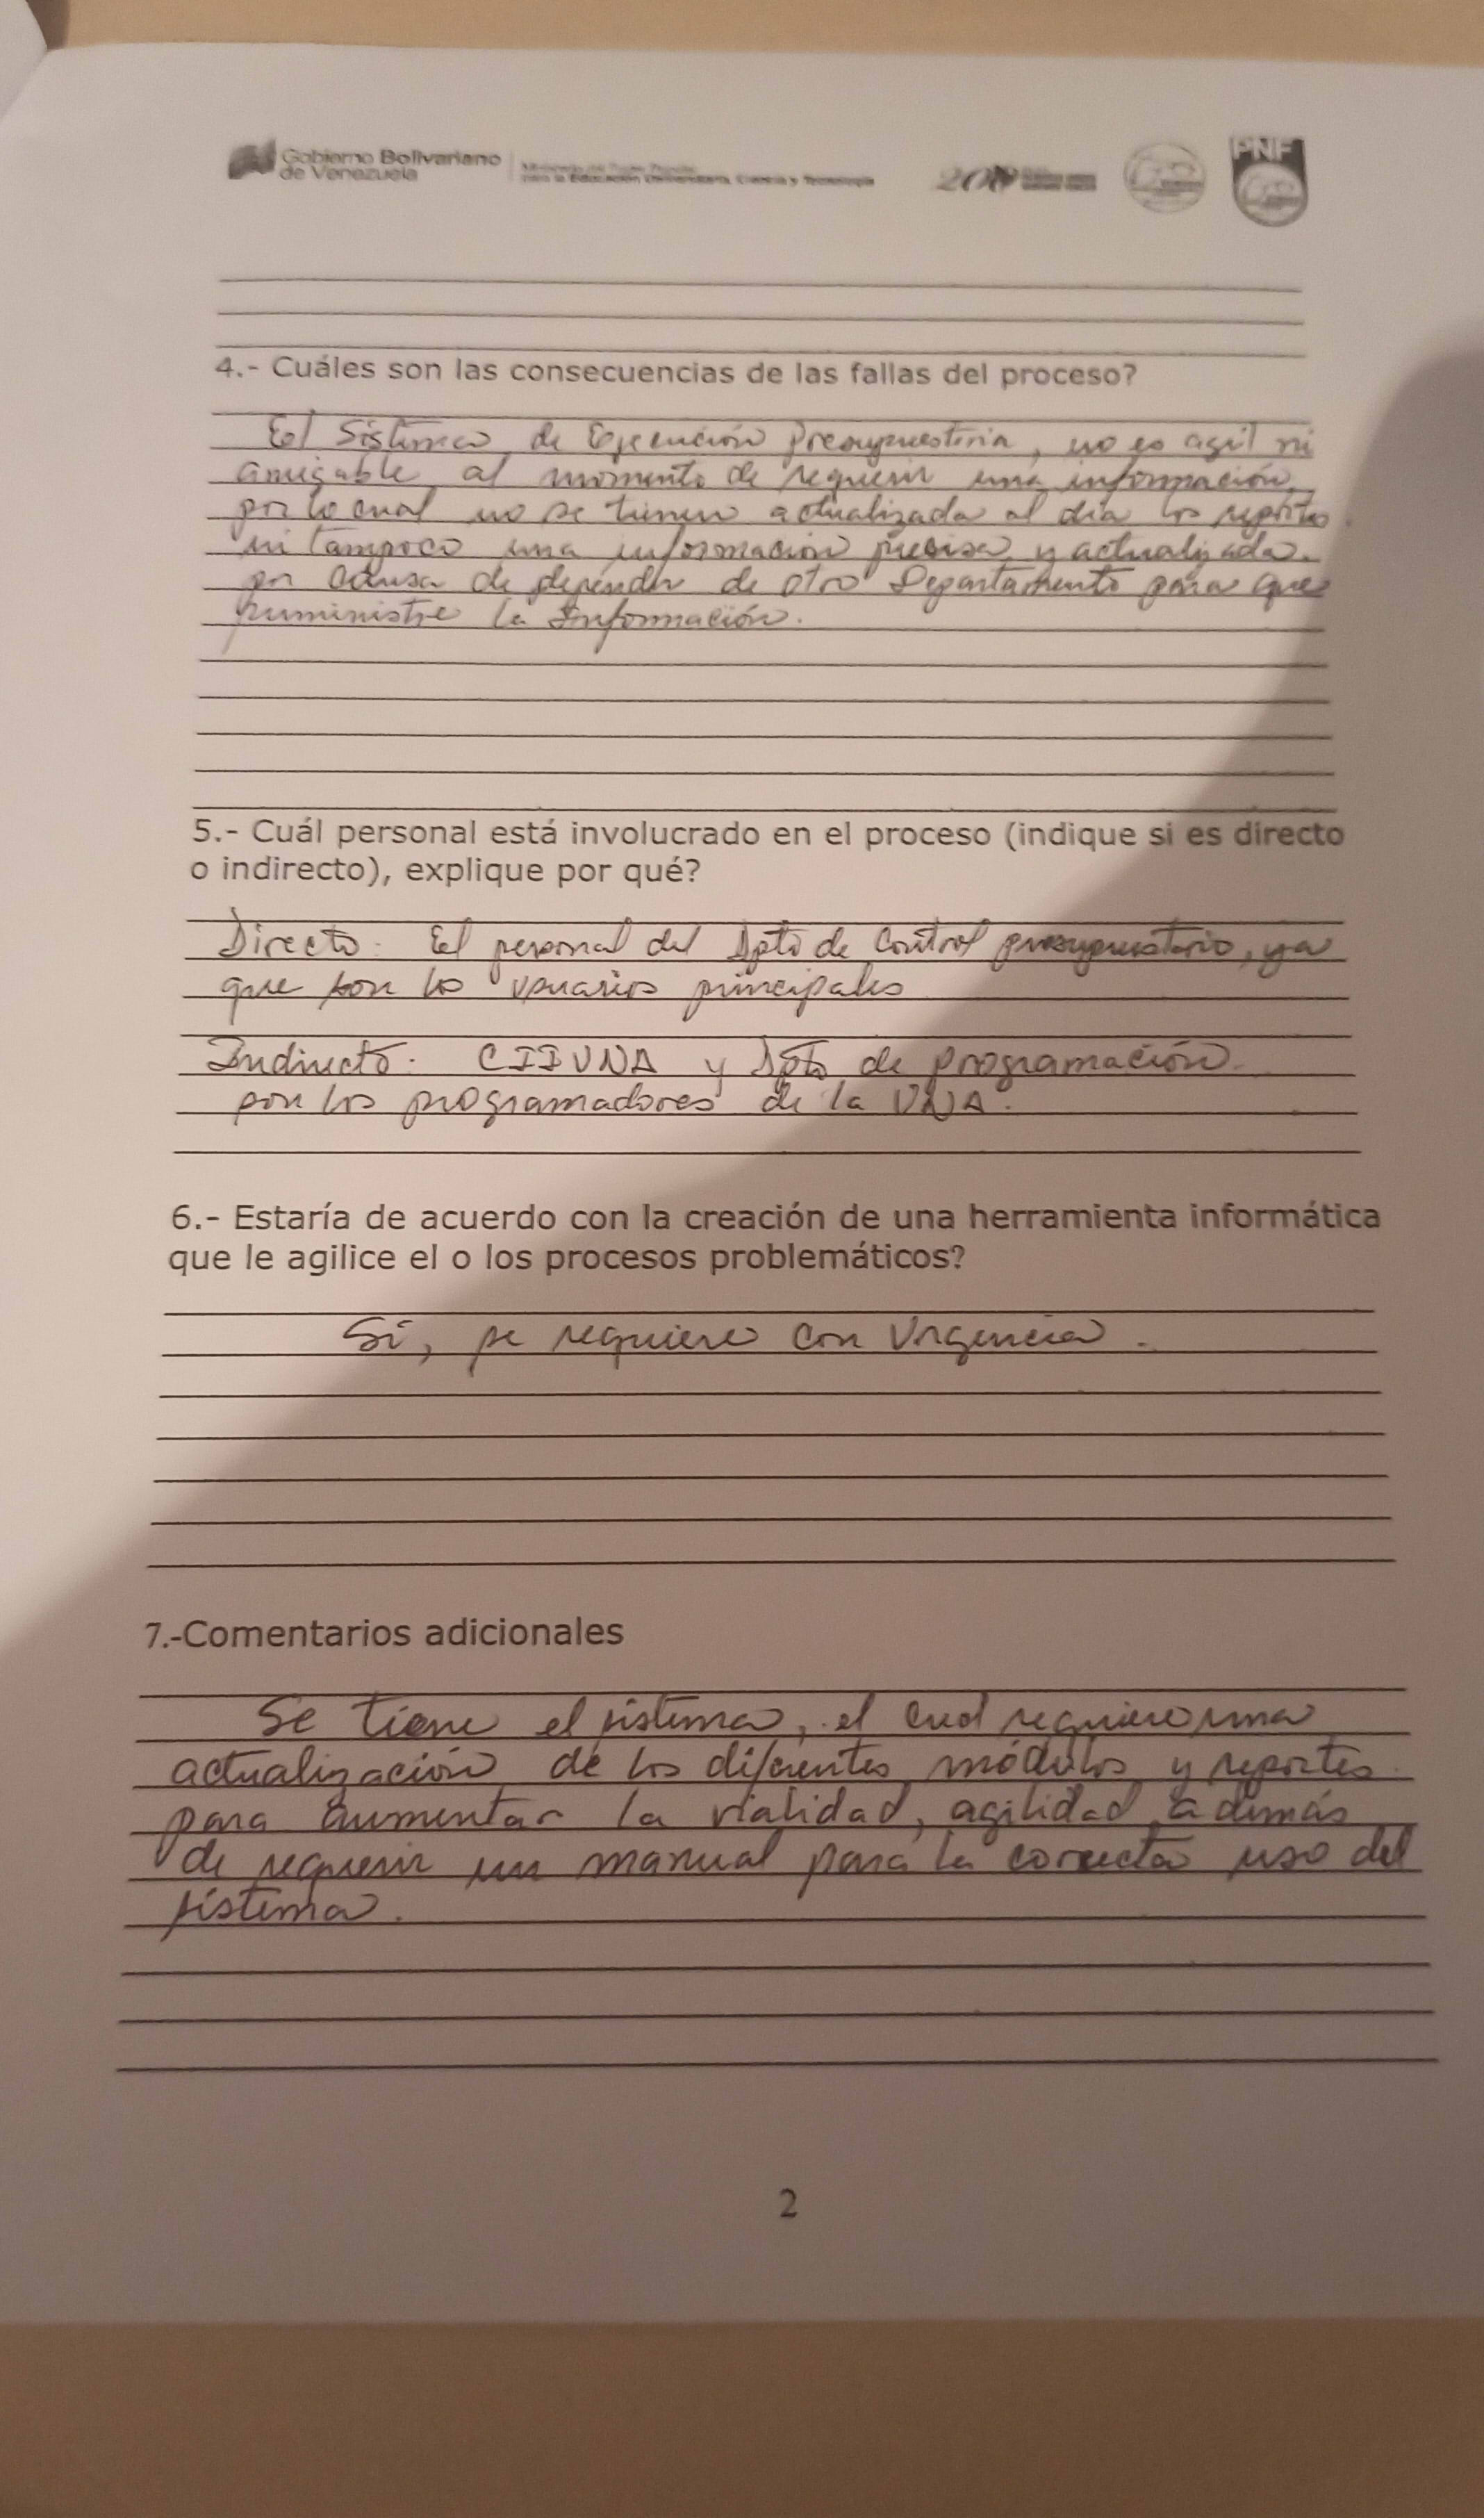 Gobierno Bolivariano
de Venezuela
Ministerio del Poder Popular
para la Educación Universitaria, Ciencia y Tecnología
200
PNF
4.- Cuáles son las consecuencias de las fallas del proceso?
El Sistema de Ejecución Presupuestaria, no es agil ni
amigable al momento de requerir una información,
por lo cual no se tienen actualizada al día los reportes
ni tampoco una información precisa y actualizada.
por causa de depender de otro Departamento para que
suministre la Información.
5.- Cuál personal está involucrado en el proceso (indique si es directo
o indirecto), explique por qué?
Directo: El personal del Dpto de Control presupuestario, ya
que son los usuarios principales
Indirecto: CIIUNA y Dpto de programación
son los programadores de la UNA.
6.- Estaría de acuerdo con la creación de una herramienta informática
que le agilice el o los procesos problemáticos?
Si, se requiere con Urgencia.
7.-Comentarios adicionales
Se tiene el sistema, el cual requiere una
actualización de los diferentes módulos y reportes
para aumentar la vialidad, agilidad además
de requerir un manual para la correcta uso del
sistema.
2